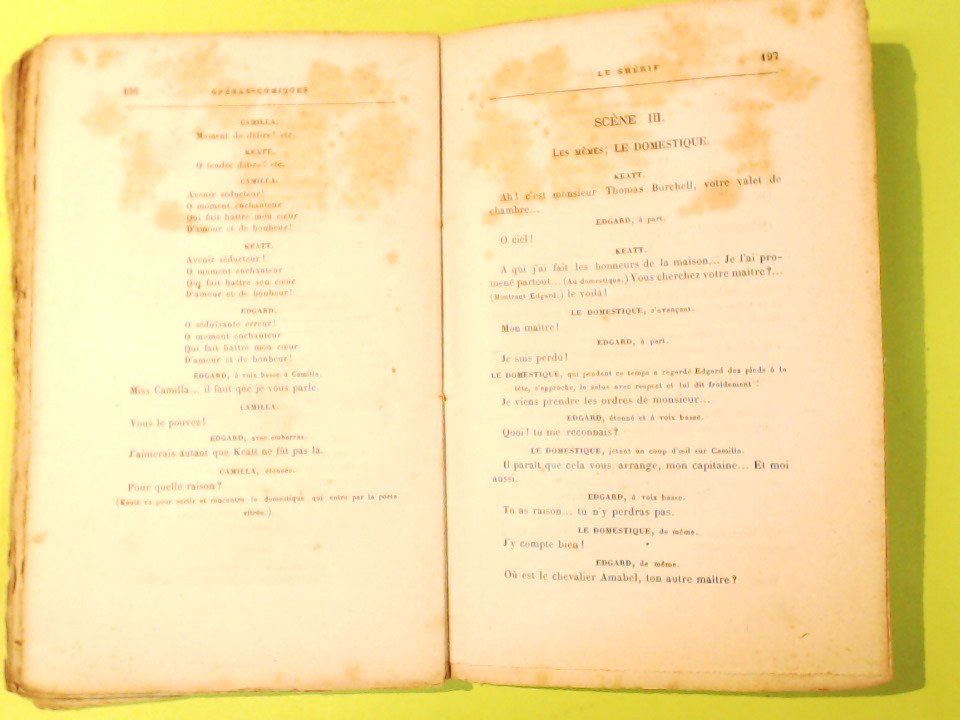 196 OPÉRAS-COMIQUES
CAMILLA.
Moment de délire! etc.
KEATT.
O tendre délire! etc.
CAMILLA.
Avenir séducteur!
O moment enchanteur
Qui fait battre mon cœur
D'amour et de bonheur!
KEATT.
Avenir séducteur!
O moment enchanteur
Qui fait battre son cœur
D'amour et de bonheur!
EDGARD.
O séduisante erreur!
O moment enchanteur
Qui fait battre mon cœur
D'amour et de bonheur!
EDGARD, à voix basse à Camilla.
Miss Camilla... il faut que je vous parle.
CAMILLA.
Vous le pouvez!
EDGARD, avec embarras.
J'aimerais autant que Keatt ne fût pas là.
CAMILLA, étonnée.
Pour quelle raison?
(Keatt va pour sortir et rencontre le domestique qui entre par la porte
vitrée.)
LE SHÉRIF 197
SCÈNE III.
LES MÊMES; LE DOMESTIQUE.
KEATT.
Ah! c'est monsieur Thomas Burchell, votre valet de
chambre...
EDGARD, à part.
O ciel!
KEATT.
A qui j'ai fait les honneurs de la maison... Je l'ai pro-
mené partout... (Au domestique.) Vous cherchez votre maître?...
(Montrant Edgard.) le voilà!
LE DOMESTIQUE, s'avançant.
Mon maître!
EDGARD, à part.
Je suis perdu!
LE DOMESTIQUE, qui pendant ce temps a regardé Edgard des pieds à la
tête, s'approche, le salue avec respect et lui dit froidement:
Je viens prendre les ordres de monsieur...
EDGARD, étonné et à voix basse.
Quoi! tu me reconnais?
LE DOMESTIQUE, jetant un coup d'œil sur Camilla.
Il paraît que cela vous arrange, mon capitaine... Et moi
aussi.
EDGARD, à voix basse.
Tu as raison... tu n'y perdras pas.
LE DOMESTIQUE, de même.
J'y compte bien!
EDGARD, de même.
Où est le chevalier Amabel, ton autre maître?